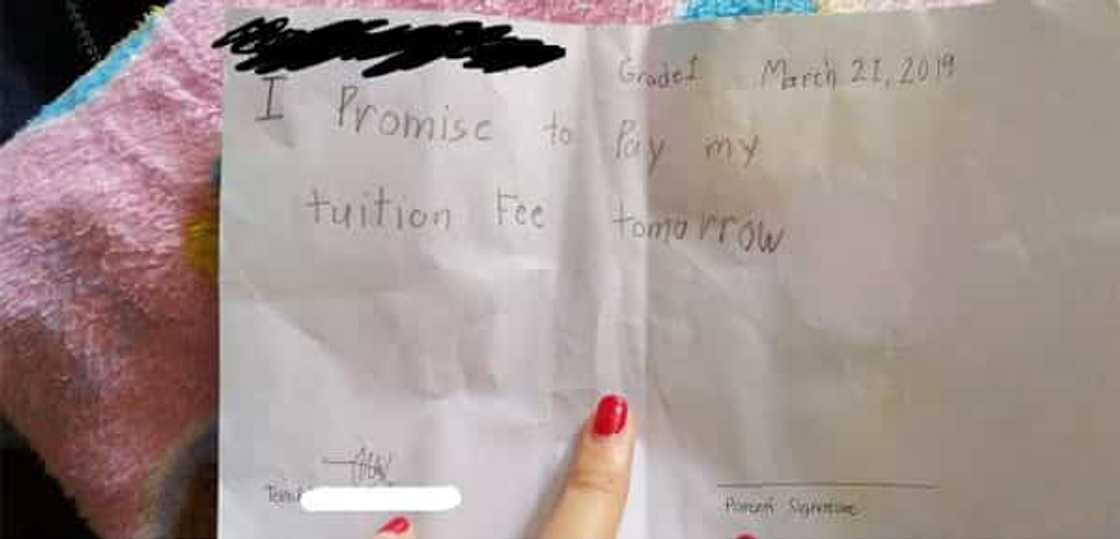 Grade 1 March 21, 2019
I Promise to Pay my
tuition Fee tomorrow
Parent Signature